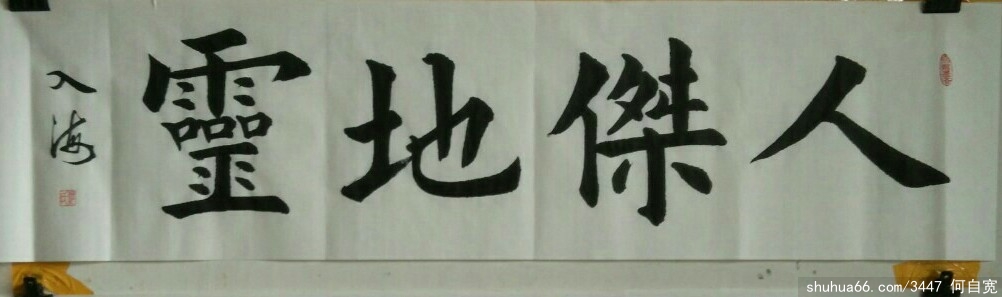 人傑地靈
入海
shuhua66.com/3447 何自宽